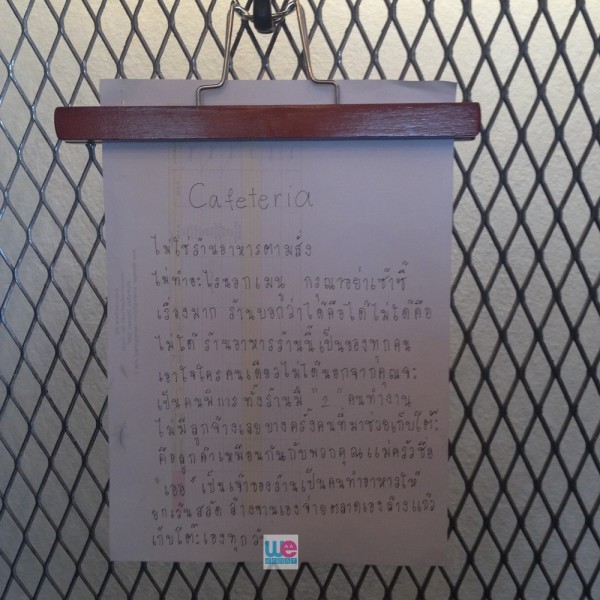 Cafeteria
ไม่ใช่ร้านอาหารตามสั่ง
ไม่ทำอะไรนอกเมนู กรุณาอย่าเซ้าซี้
เรื่องมาก ร้านบอกว่าได้คือได้ไม่ได้คือ
ไม่ได้ ร้านอาหารร้านนี้เป็นของทุกคน
เอาใจใครคนเดียวไม่ได้นอกจากคุณจะ
เป็นคนพิการ ทั้งร้านมี "2" คนทำงาน
ไม่มีลูกจ้างเลย บางครั้งคนที่มาช่วยเก็บโต๊ะ
คือลูกค้าเหมือนกันกับพวกคุณ แม่ครัวชื่อ
เป็นเจ้าของร้านเป็นคนทำอาหารให้
ล้างจานเองจ่ายตลาดเองล้างแก้ว
เก็บโต๊ะเองทุกวัน
we